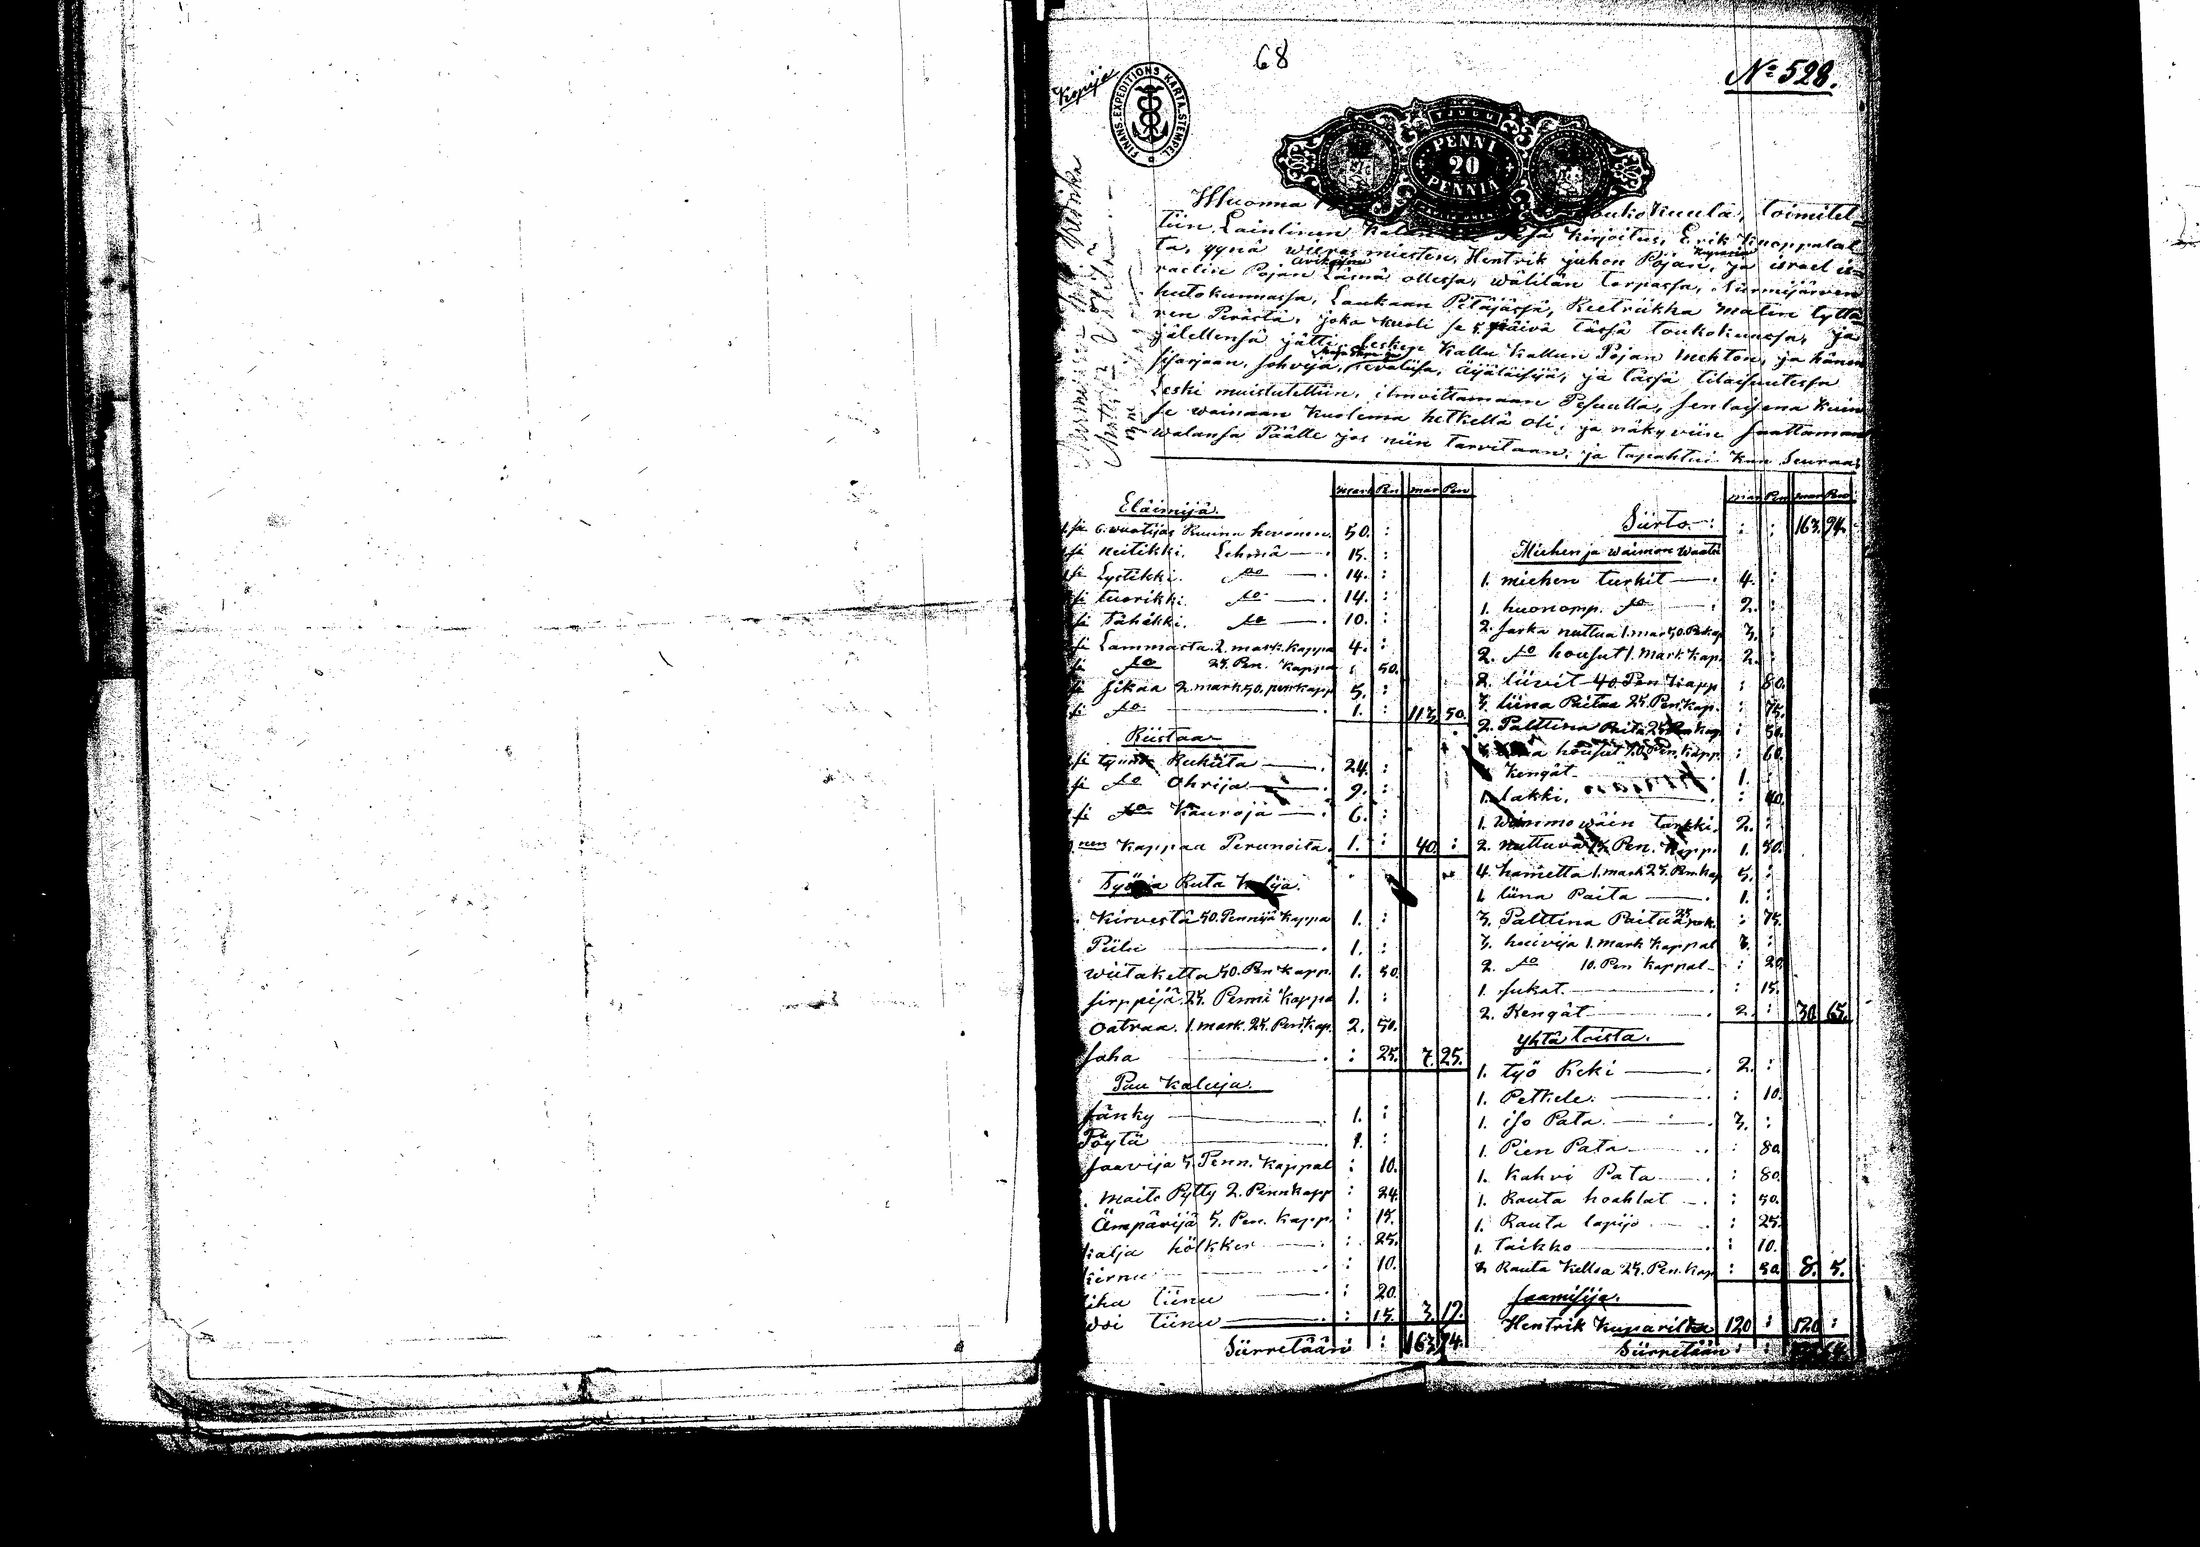 68
No 528.
Kopija
FINANS. EXPEDITIONS KARTA. STEMPEL
TJUGU
PENNI
20
PENNIÄ
Wuonna toukokuula, toimitet-
tiin Lainlinen Kalun Pesä Kirjoitus, Erik Knoppalal
ta, yynä wieras miesten, Hentrik juhon Pojan, ja israel is-
Kuparin
raelin Pojan Läsnä ollessa, wälilän torpassa, Nurmijärven
hutokunnassa, Laukaan Pitäjässä, Reetrikka Matin tyttä
ren Perästä, joka kuoli se 5 päivä tässä toukokuussa, ja
jälellensä jätti, Lesken Kallu Kallun Pojan Mehton, ja hänen
sisarjaan, sohvija, Äijäläisijä, ja tässä tilaisuutessa
Leski muistutettiin, ilmoittamaan Pesuutta, senlaisena kuin
se wainaan kuolema hetkellä oli, ja näkyviin saattamaan
walansa Päälle jos niin tarvitaan, ja tapahtui kun Seuraa:
mark Pen mar Pen
Eläimijä.
si 6. wuotijas Ruunu hevonen. 50. :
si neitikki. Lehmä — 15. :
si Lystikki. do — 14. :
si tuorikki. do — 14. :
si Tähikki. do — 10. :
si Lammasta 2. mark. Kappa 4. :
si do 25. Pen. Kappa : 50.
si sikaa 2. mark 50. pen kapp 5. :
si do 1. : 113. 50.
Riistaa
si tynn Rukiita — 24. :
si do Ohrija — 9. :
si do Kauroja — 6. :
nen Kappaa Perunoita. 1. : 40. :
Työ ja Ruta Kalija.
Kirvestä 50. Pennijä Kappa 1. :
Piilu 1. :
wiitaketta 50. Pen Kapp. 1. 50.
sirppijä. 25. Penni Kappa 1. :
oatraa. 1. mark. 25. Pen. Kap. 2. 50.
saha : 25. 7. 25.
Puu Kaluja.
sänky 1. :
Pöytä 1. :
saavija 5. Penn. Kappal : 10.
maito Pytty 2. Penn Kapp : 24.
Ämpärijä 5. Pen. Kapp. : 15.
kalja hölkker : 25.
kirnu : 10.
tiinu : 20.
woi tiinu : 15. 3. 19.
Siirretään : : 163. 94.
mar Pen mar Pen
Siirto : : : 163. 94.
Miehen ja waimon waatet
1. miehen turkit — 4. :
1. huonomp. do — 2. :
2. sarka nuttua 1. mar 50. Pe kap 3. :
2. do housut 1. Mark Kap. 2. :
2. liivit 40. Pen Kapp : 80.
3. liina Paitaa 25. Pen. Kap. : 75.
2. Palttina Paita 25. Pen Kap : 50.
housut 20. Pen. Kapp. : 60.
Kengät 1. :
1. Lakki. : 40.
1. Waimo wäin turkki. 2. :
2. nuttuva 75. Pen. Kapp. 1. 50.
4. hametta 1. mark 25. Pen Kap 5. :
1. liina Paita 1. :
3. Palttina Paitaa 25 pen. : 75.
3. huivija 1. mark Kappal 3. :
2. do 10. Pen Kappal : 20.
1. sukat. : 15.
2. Kengät 2. : 30. 65.
yhtä toista.
1. työ Reki 2. :
1. Petkele. : 10.
1. iso Pata. 3. :
1. Pien Pata : 80.
1. Kahvi Pata : 80.
1. Rauta hoahlat : 50.
1. Rauta lapijo : 25.
1. taikko : 10.
2. Rauta Kelloa 25. Pen. Kap : 50. 8. 5.
saamisija.
Hentrik Kuparilta 120 : 120 :
Siirretään : :